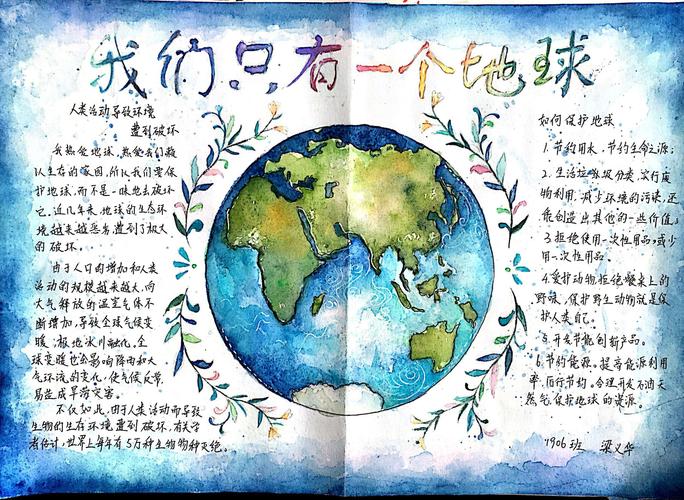 我们只有一个地球
人类活动导致环境
遭到破坏
我热爱地球,热爱我们赖
以生存的家园,所以我们要保
护地球,而不是一味地去破坏
它,近几年来,地球的生态环
境越来越恶劣遭到了极大
的破坏。
由于人口的增加和人类
活动的规模越来越大,向
大气释放的温室气体不
断增加,导致全球气候变
暖,极地冰川融化。全
球变暖也会影响降雨和大
气环流的变化,使气候反常,
易造成旱涝灾害。
不仅如此,由于人类活动而导致
生物的生存环境遭到破坏,有关学
者估计,世界上每年有5万种生物物种灭绝。
如何保护地球
1.节约用水,节约生命之源;
2.生活垃圾级分类,实行废
物利用,减少环境的污染,还
能创造出其他的一些价值;
3.拒绝使用一次性用品,或少
用一次性用品。
4.爱护动物,拒绝餐桌上的
野味,保护野生动物就是保
护人类自己。
5.开发节能创新产品。
6.节约能源。提高能源利用
率,厉行节约,合理开发石油天
然气,保护地球的资源。
1906班 梁义华